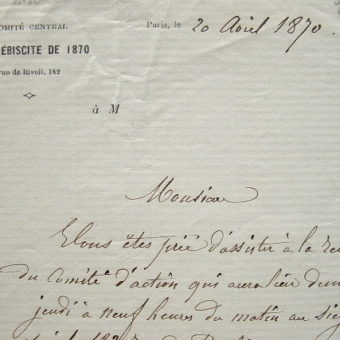 COMITÉ CENTRAL
PLÉBISCITE DE 1870
rue de Rivoli, 182
Paris, le 20 Avril 1870.
à M
Monsieur
Vous êtes prié d'assister à la
du Comité d'action qui aura lieu
jeudi à neuf heures du matin au